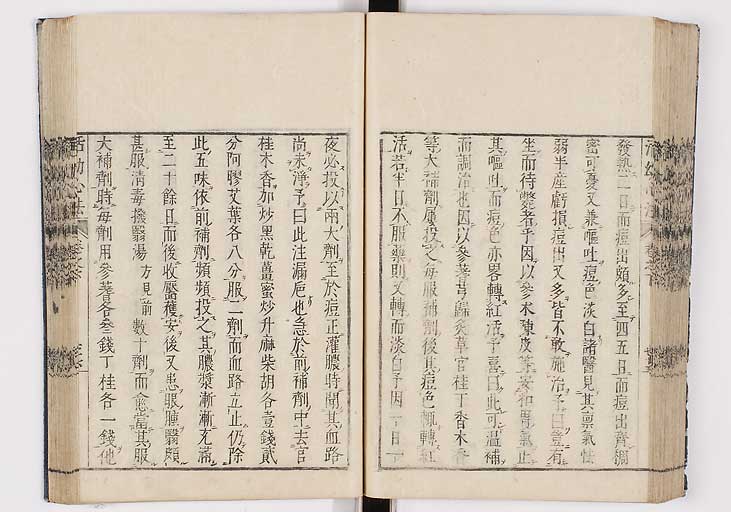 發熱一日而痘出頗多至四五日而痘出齊稠
密可憂又兼嘔吐痘色淡白諸醫見其稟氣怯
弱半產虧損痘出又多皆不敢施治予曰豈有
坐而待斃者乎因以參朮陳皮等安和胃氣止
其嘔吐而痘色亦畧轉紅活予喜曰此可溫補
而調治也因以參蓍芎歸炙草官桂丁香木香
等大補劑屢投之每服補劑後其痘色輒轉紅
活若半日不服藥則又轉而淡白予因一日一
夜必投以兩大劑至於痘正灌膿時聞其血路
尚未淨予曰此注漏巵也急於前補劑中去官
桂木香加炒黑乾薑蜜炒升麻柴胡各壹錢貳
分阿膠艾葉各八分服二劑而血路立止仍除
此五味依前補劑頻頻投之其膿漿漸漸充滿
至二十餘日而後收靨穫安後又患眼腫翳頗
甚服清毒撥翳湯方見前數十劑而愈當其服
大補劑時每劑用參蓍各叁錢丁桂各一錢他
活幼心法